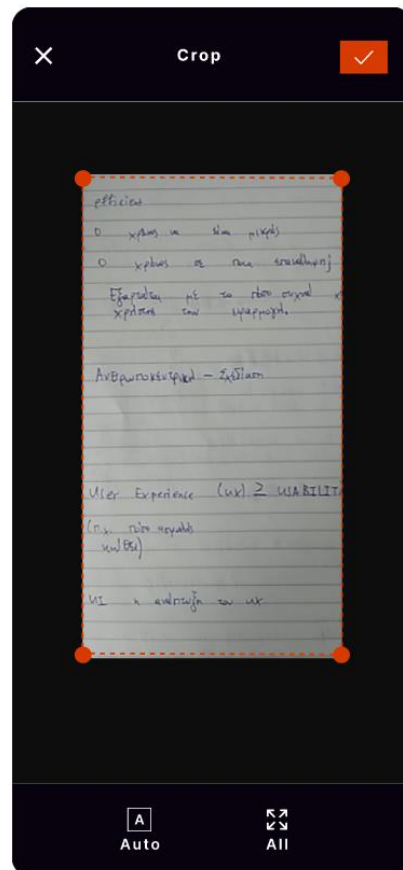 Crop
efficient
Ο χρόνος να είναι μικρός
Ο χρόνος σε
Εξαρτάται με το πόσο συχνά
χρήστης την εφαρμογή.
Ανθρωποκεντρική - Σχεδίαση
User Experience (UX) ≥ USABILIT
(πχ. πόσο
UI η ανάπτυξη του UX
A
Auto
All